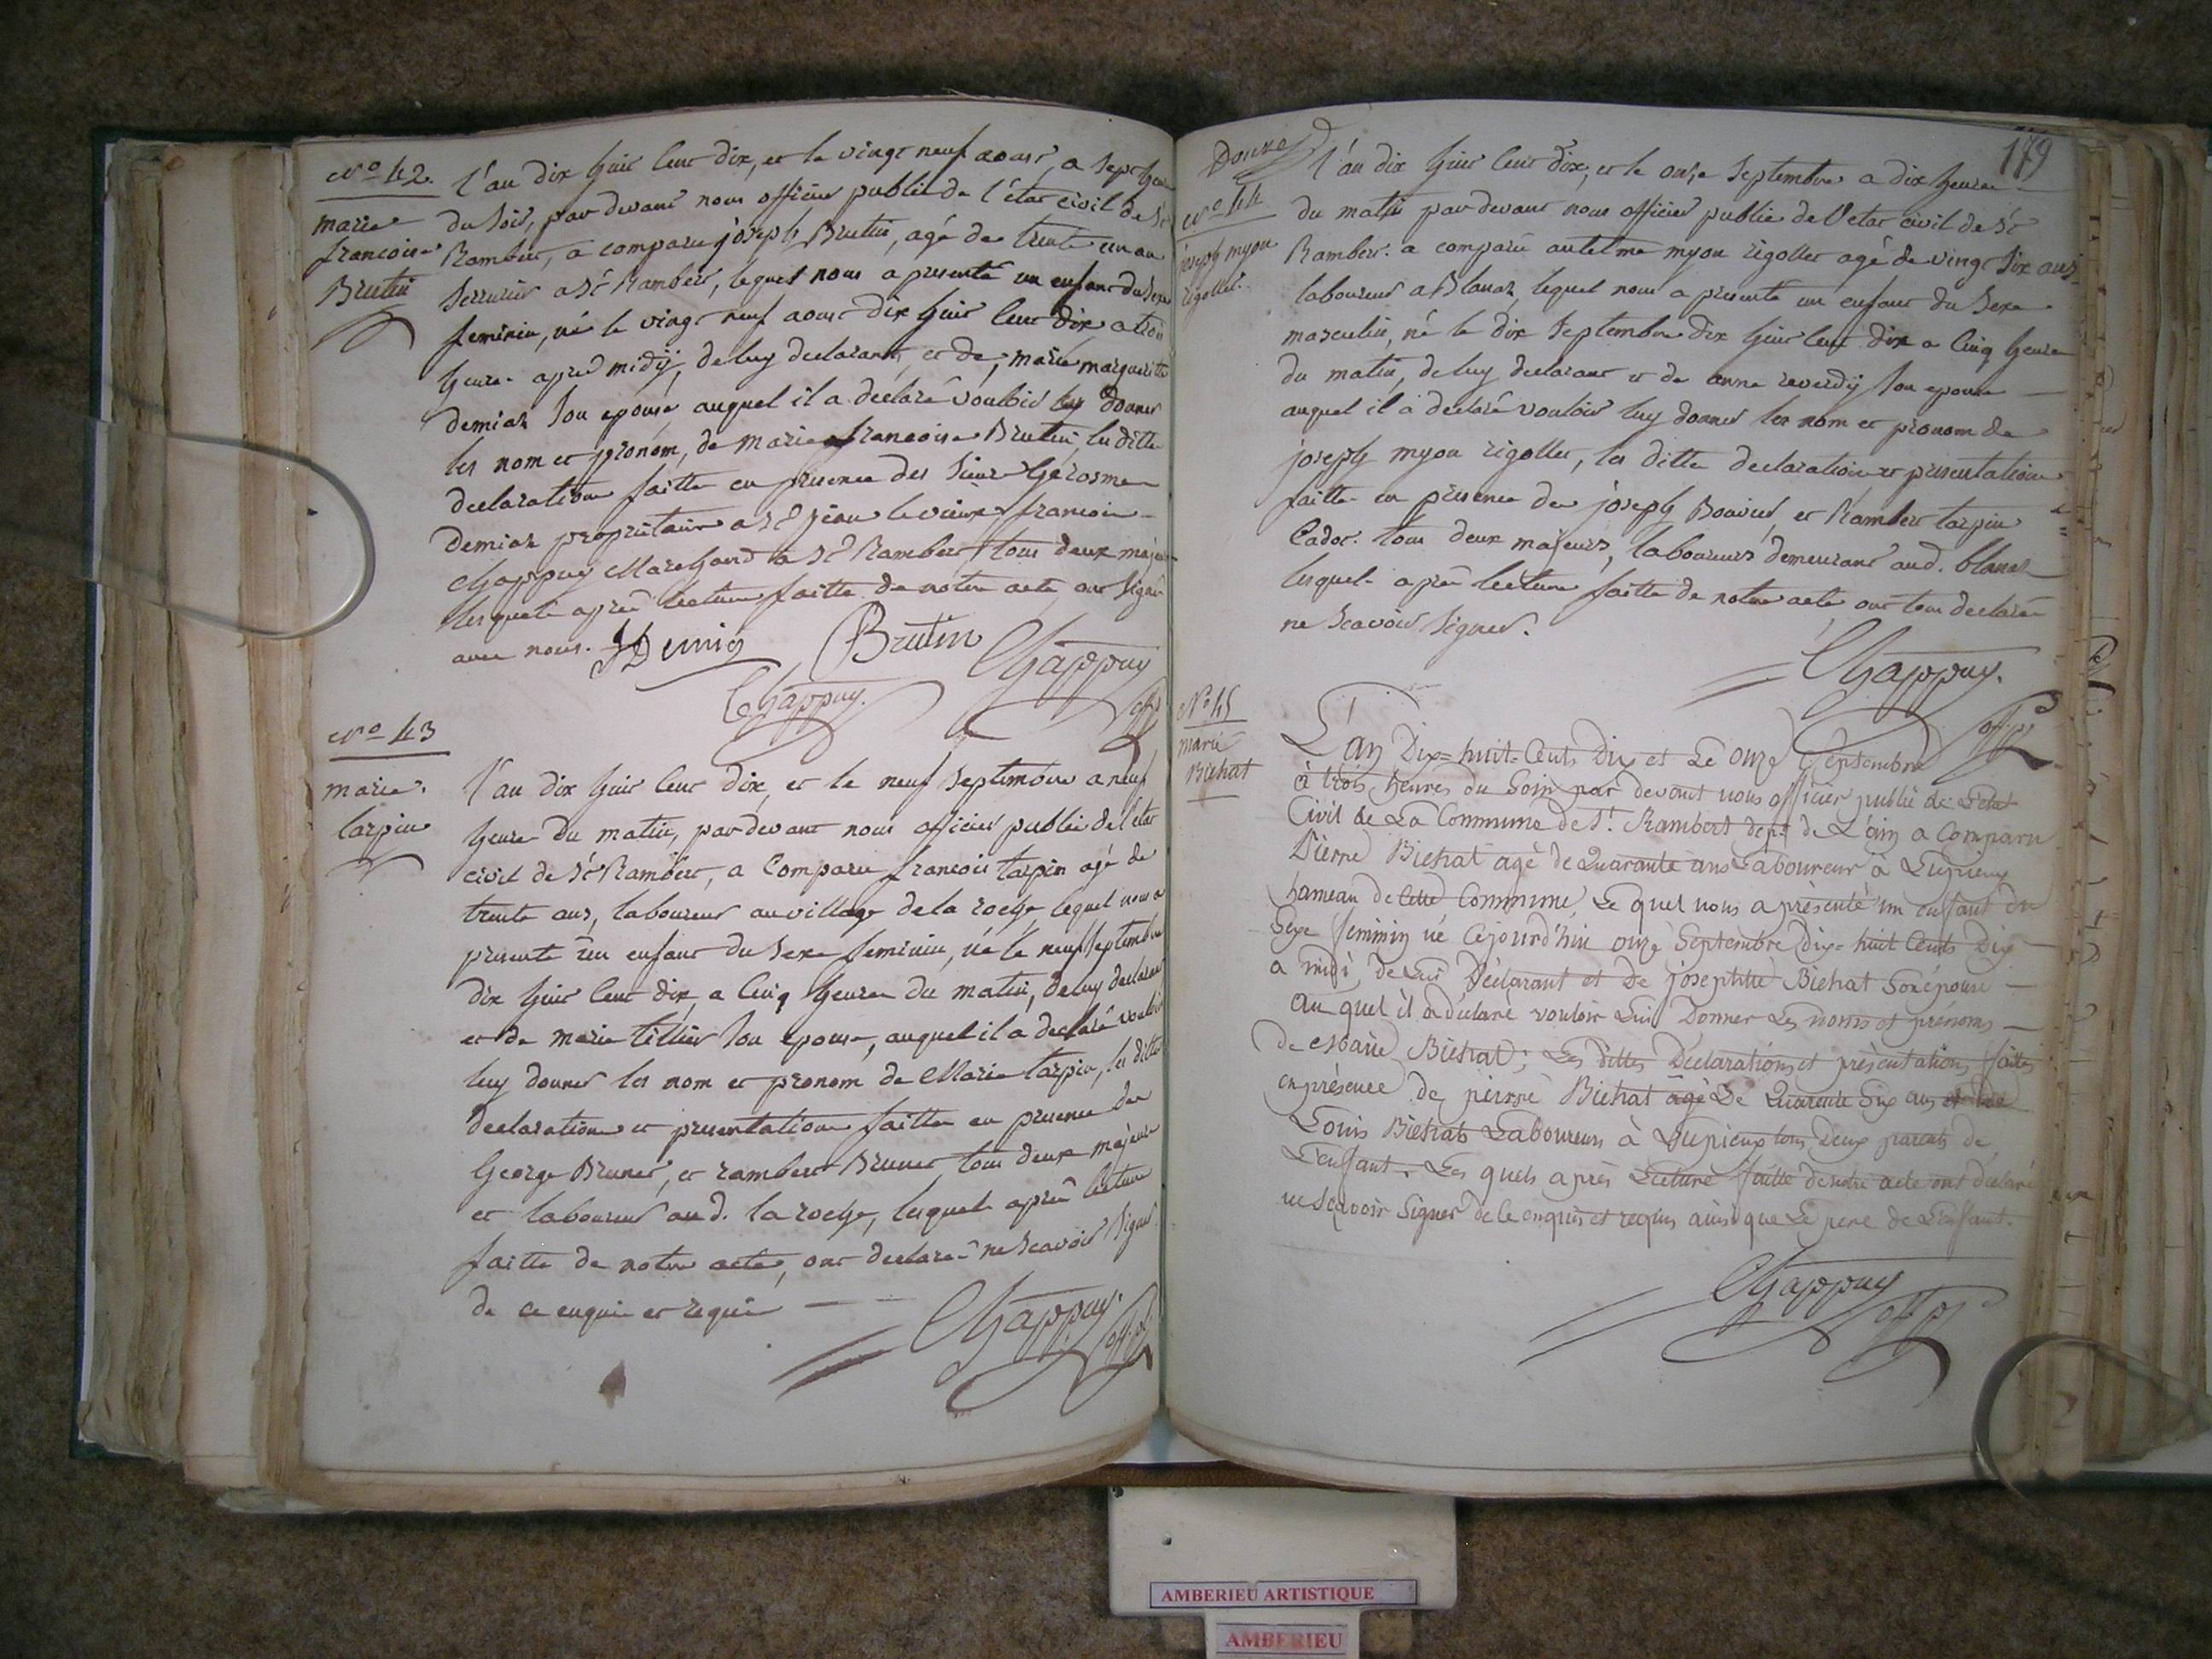 No 42.
marie
francoise
Brutin
L'an dix huit cent dix, et le vingt neuf aoust, a sept heure
du soir, par devant nous officier public de l'état civil de St
Rambert, a comparu joseph Brutin, agé de trente un an
serrurier a St Rambert, lequel nous a presenté un enfant du sexe
feminin, né le vingt neuf aoust dix huit cent dix a trois
heure apres midÿ, de luy declarant, et de, marie margueritte
demiaz son epouse auquel il a déclaré vouloir luy donner
les nom et prénom, de marie francoise Brutin, la ditte
declaration faitte en presence des sieur hérosme
demiaz propriétaire a St jean le vieux, francois
Chappuy Marchand a St Rambert tous deux majeur
lesquels après lecture faitte de notre acte, ont signé
avec nous. Demiaz Brutin Chappuy
Chappuy. off. p.
No 43
marie
tarpin
L'an dix huit cent dix, et le neuf septembre a neuf
heure du matin, par devant nous officier public de l'état
civil de St Rambert, a comparu francois tarpin agé de
trente ans, laboureur au village de la roche, lequel nous a
presenté un enfant du sexe feminin, né le neuf septembre
dix huit cent dix, a cinq heure du matin, de luy declarant
et de marie tillier son epouse, auquel il a declaré vouloir
luy donner les nom et prenom de Marie tarpin, les ditte
declaration et presentation faitte en presence de
George Brunet, et rambert Brunet tous deux majeur
et laboureur aud. la roche, lesquels après lecture
faitte de notre acte, ont declaré ne scavoir signer
de ce enquis et requis
Chappuy. off. p.
179
Douze
No 44
joseph myon
rigollet.
L'an dix huit cent dix, et le onze septembre a dix heure
du matin par devant nous officier public de l'etat civil de St
Rambert. a comparu antelme myon rigollet agé de vingt six ans
laboureur a Blanaz, lequel nous a presenté un enfant du sexe
masculin, né le dix septembre dix huit cent dix a cinq heure
du matin, de luy declarant et de anne reverdÿ son epouse
auquel il a déclaré vouloir luy donner les nom et prenom de
joseph myon rigollet, les ditte declaration et presentation
faitte en presence de joseph Bouvier, et Rambert tarpin
Cador. tous deux majeurs, laboureurs demeurant aud. blanaz
lesquels après lecture faitte de notre acte ont tous declaré
ne scavoir signer.
Chappuy. off. p.
No 45
marie
Bichat
L'an Dix=huit=Cents Dix et Le onze Septembre
à trois heures du Soir par devant nous officier public de L'état
Civil de La Commune de St. Rambert dept. de L'ain a Comparu
Pierre Bichat agé de Quarante ans Laboureur à Lupieux
hameau de cette Commune, Le quel nous a présenté un enfant du
Sexe féminin né Cejourd'hui onze Septembre Dix=huit Cents Dix
a midi, de Lui Déclarant et De josephtte Bichat Son épouse
Au quel il a déclaré vouloir Lui Donner Les noms et prénoms
de Marie Bichat; Les dittes Déclarations et présentations faites
en présence de pierre Bichat agé De Quarente Six ans
Louis Bichats Laboureurs à Lupieux tous Deux parents de
L'enfant. Les quels après Lecture faitte de notre acte ont déclaré
ne Scavoir Signer de ce enquis et requis ainsi que Le pere de L'enfant.
Chappuy off. p.
AMBERIEU ARTISTIQUE
AMBERIEU